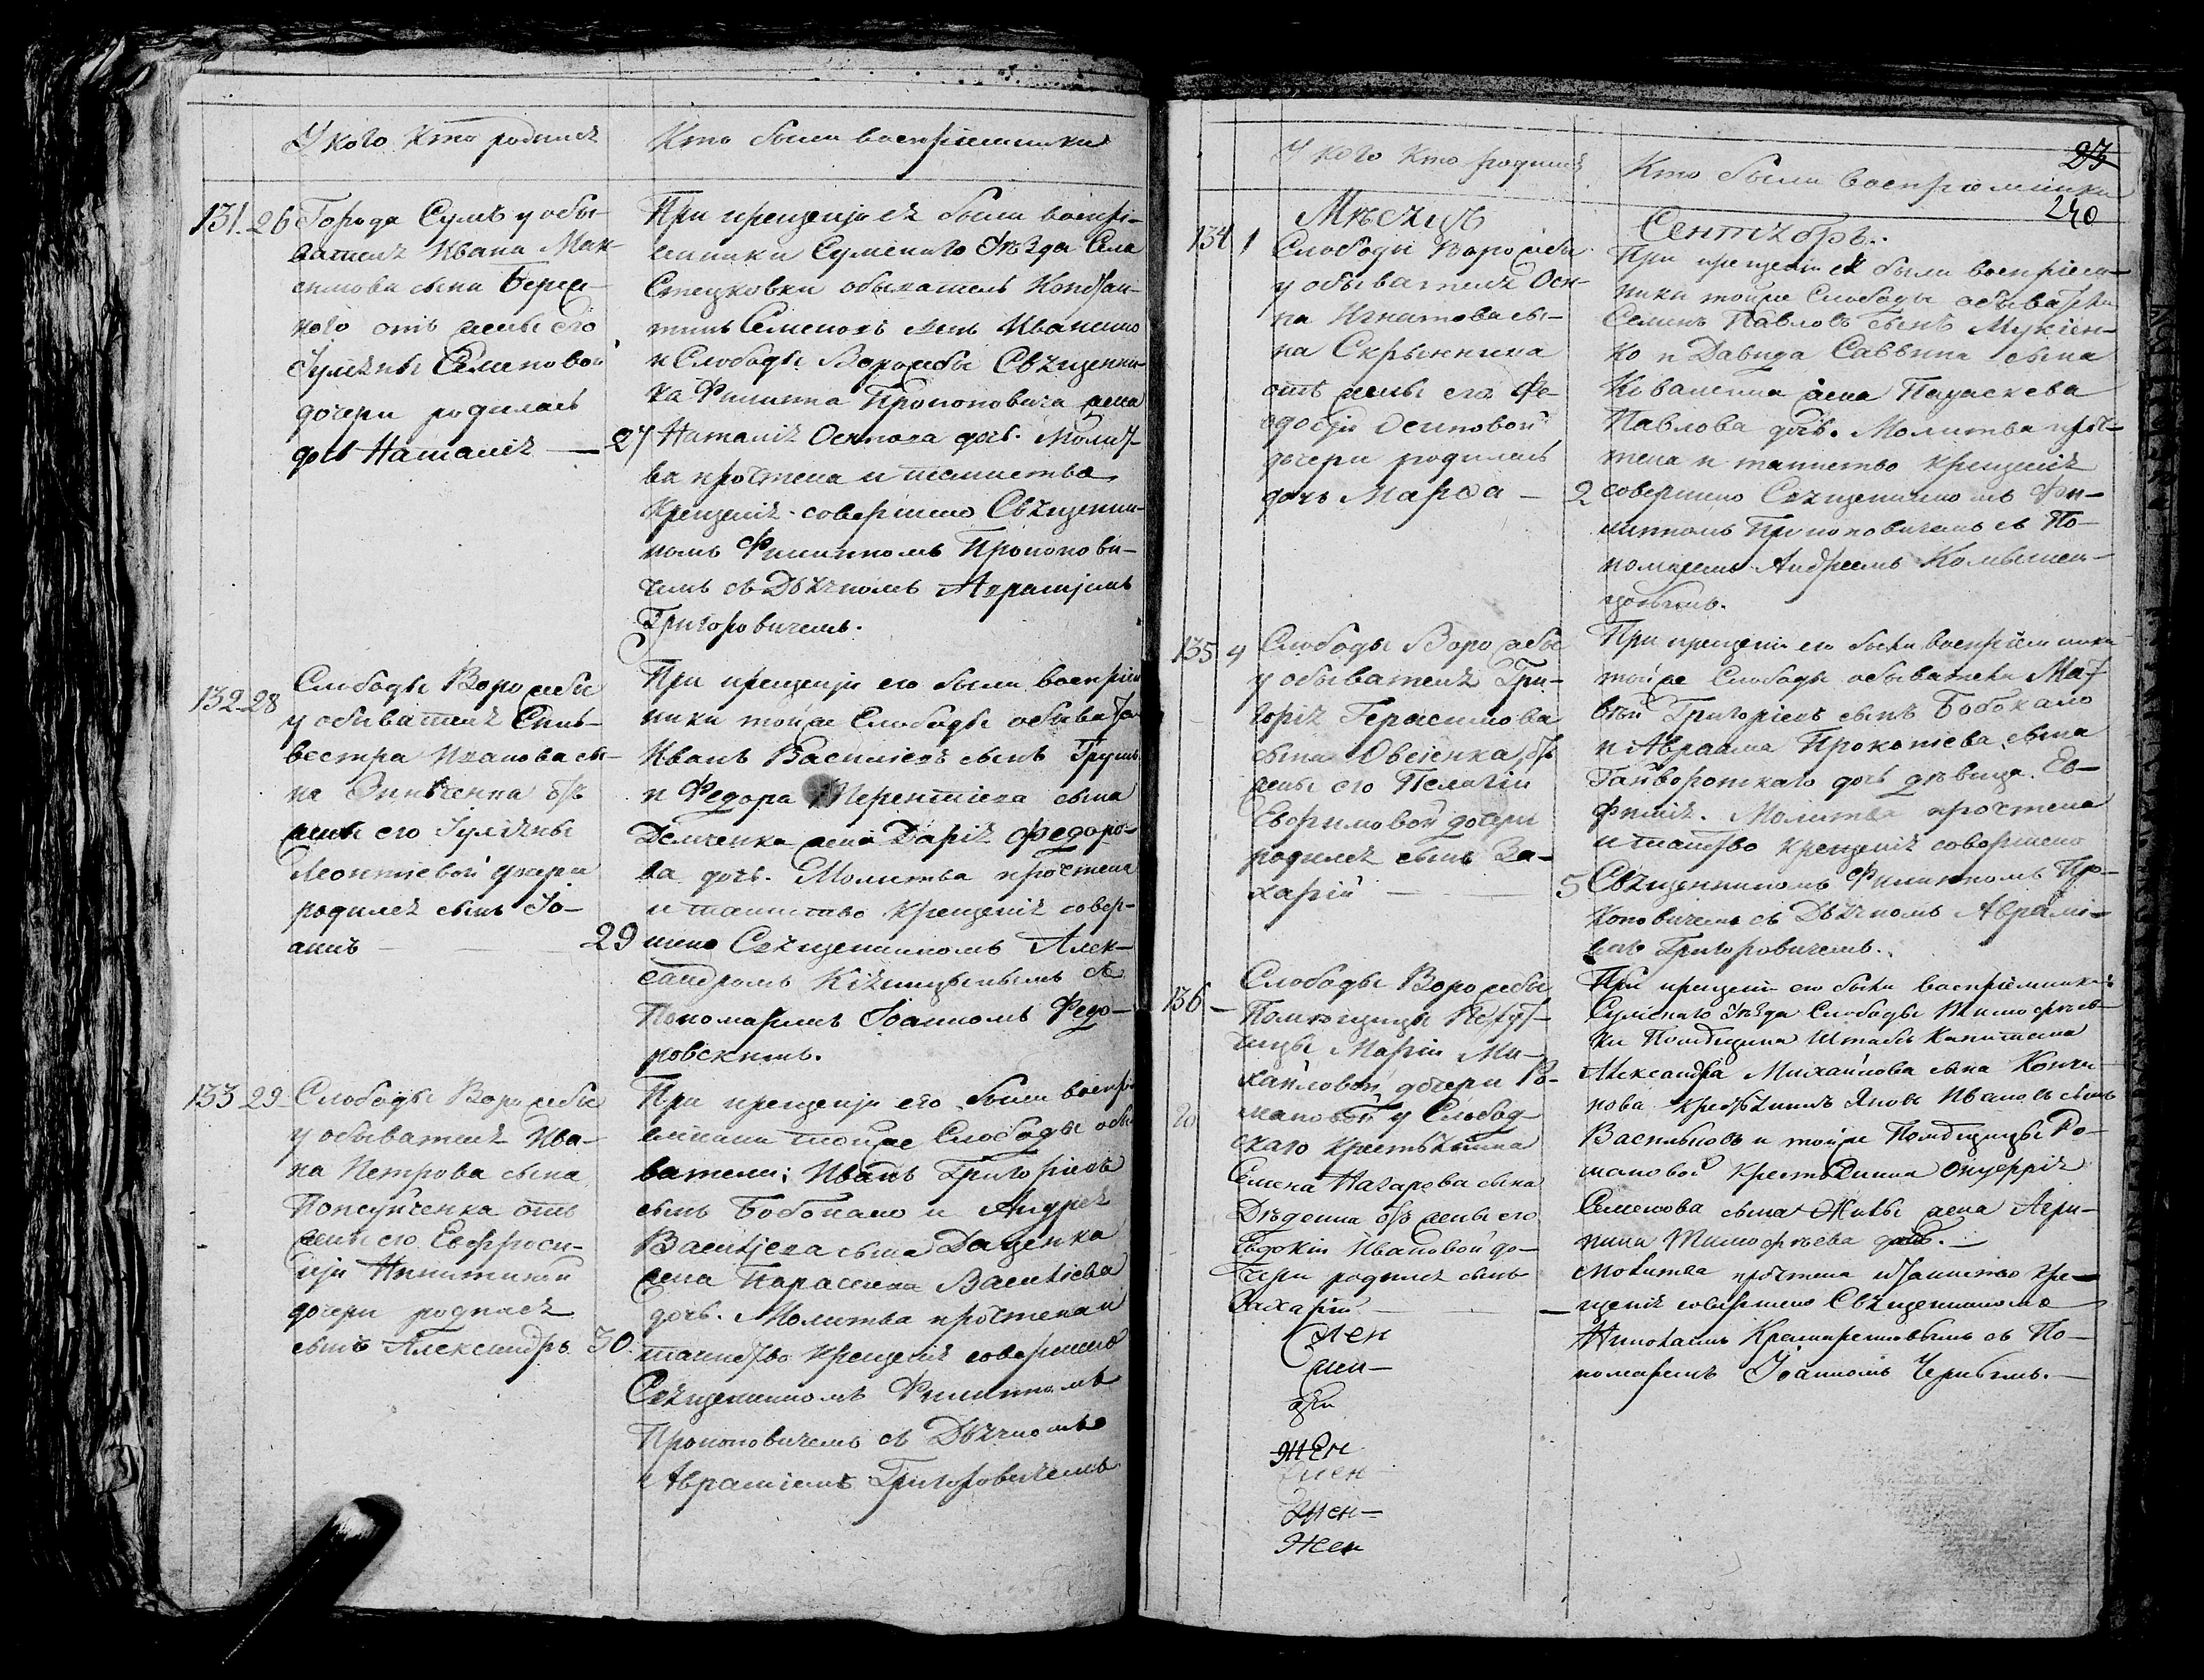 У кого кто родился
Кто были воспріемники
131. 26 Города Сумъ у обы-
вателя Ивана Мак-
симова сына
кого отъ жены его
Іуліяны Семеновой
дочери родилась
дочь Наталія — 27
При крещеніи ея были воспрі-
емники Сумскаго Уѣзда Села
Стецковки обыватель Констан-
тинъ Семеновъ сынъ Иваненко
и Слободы Ворожбы Священни-
ка Филиппа Прокоповича жена
Наталія Осипова дочь. Молит-
ва прочтена и таинство
Крещенія совершено Священни-
комъ Филиппомъ Прокопови-
чемъ съ Дьячкомъ Аврамiемъ
Григоровичемъ.
132. 28 Слободы Ворожбы
у обывателя Силь-
вестра Иванова сы-
на отъ
жены его Іуліяны
Леонтіевой дочери
родился сынъ Іо-
аннъ — 29
При крещеніи его были воспріем
ники тойже Слободы обывател
Иванъ Василіевъ сынъ
и Федора Терентіева сына
Демченка жена Дарія Федоро-
ва дочь. Молитва прочтена
и таинство крещенія совер-
шено Священникомъ Алек-
сандромъ съ
Пономаремъ Іоанномъ Федо-
ровскимъ.
133 29 Слободы Ворожбы
у обывателя Ива-
на Петрова сына
отъ
жены его Евфроси-
ніи Никитиной
дочери родился
сынъ Александръ 30.
При крещеніи его были воспрі
емники тойже Слободы обы
ватели: Иванъ Григоріевъ
сынъ Бобокало и Андрея
Василіева сына Даценка
жена Параскева Василіева
дочь. Молитва прочтена и
таинство крещенія совершено
Священникомъ Филиппомъ
Прокоповичемъ съ Дьячкомъ
Аврамiемъ Григоровичемъ
23
240
У кого кто родился
Кто были воспріемники
Мѣсяцъ
Сентябрь.
134 1 Слободы Ворожбы
у обывателя Оси-
па Игнатова сы-
на Скрынника
отъ жены его Фе-
одосіи Осиповой
дочери родилась
дочь Марѳа — 2
При крещеніи ея были воспріем-
ники тойже Слободы обыватели
Семенъ Павловъ сынъ
и Давида Саввина сына
Коваленка жена Параскева
Павлова дочь. Молитва про-
чтена и таинство крещенія
совершено Священникомъ Фи-
липпомъ Прокоповичемъ съ По-
номаремъ Андреемъ
135 4 Слободы Ворожбы
у обывателя Гри-
горія Герасимова
сына Овсіенка отъ
жены его Пелагіи
Евфимовой дочери
родился сынъ За-
харій — 5
При крещеніи его были воспріемники
тойже Слободы обыватели Мат
вѣй Григоріевъ сынъ Бобокало
и Авраама Прокопіева сына
Гайворонскаго дочь дѣвица Ев-
фимія. Молитва прочтена
и таинство крещенія совершено
Священникомъ Филиппомъ Про-
коповичемъ съ Дьячкомъ Аврамі-
емъ Григоровичемъ.
136 — Слободы Ворожбы
Помѣщицы
Маріи Ми-
хайловой дочери Ро-
мановой у Слобод-
скаго крестьянина
Семена Назарева сына
отъ жены его
Евдокіи Ивановой до-
чери родился сынъ
Захарій —
При крещеніи его были воспріемники:
Сумскаго Уѣзда Слободы Тимофѣев-
ки Помѣщика Штабъ Капитана
Александра Михайлова сына
крестьянинъ Яковъ Ивановъ сынъ
Васильковъ и тойже Помѣщицы Ро-
мановой крестьянина Онуфрія
Семенова сына жена Агри-
пина Тимофѣева дочь. —
Молитва прочтена и таинство кре-
щенія совершено Священникомъ
Николаемъ съ По-
номаремъ Іоанномъ
жен
жен—
жен
жен
жен—
жен